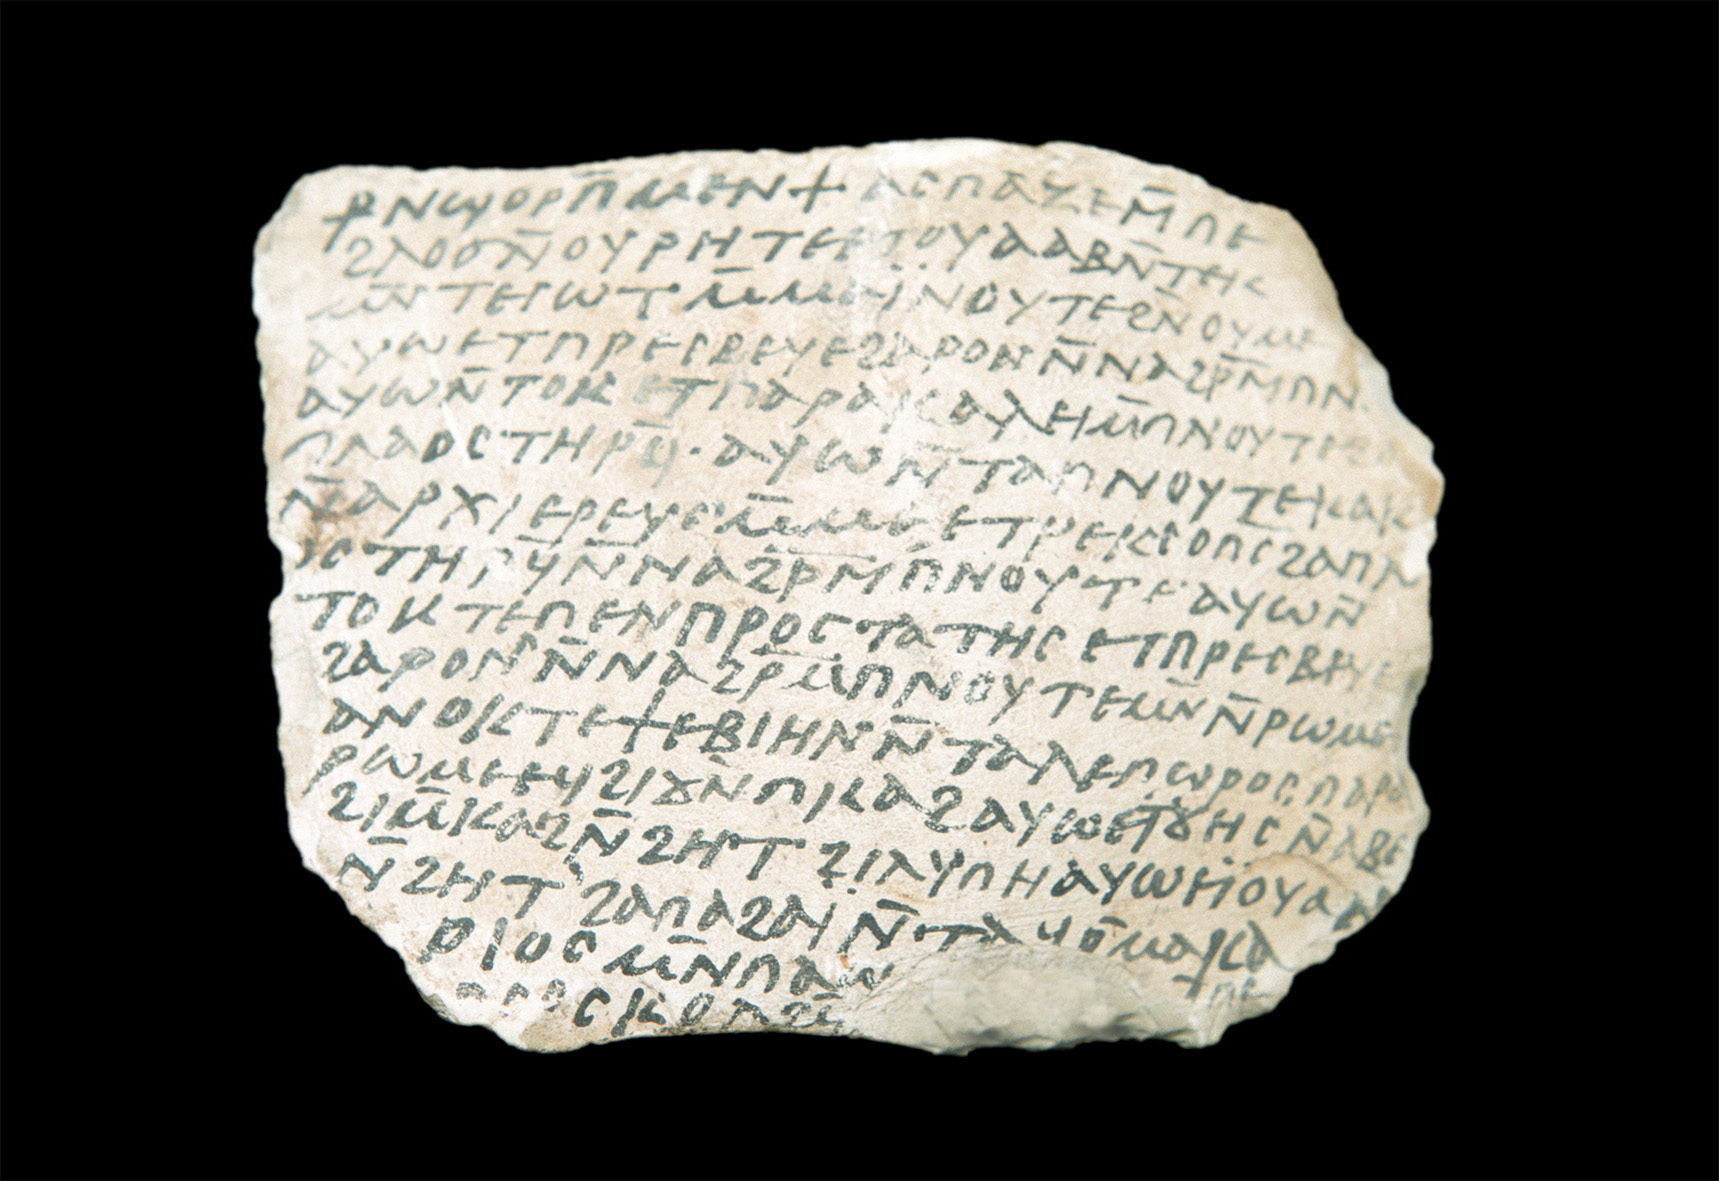 ⳨ ⲛϣⲟⲣⲡ̄ ⲙⲉⲛ ϯ ⲁⲥⲡⲁⲍⲉ ⲙ̄ⲡⲉ
ϩⲗⲟϭ ⲛ̄ⲟⲩⲣⲏⲧⲉ ⲉⲧⲟⲩⲁⲁⲃ ⲛ̄ⲧⲉⲕ
ⲙⲛ̄ⲧⲉⲓⲱⲧ ⲙ̄ⲙⲁⲓ̈ⲛⲟⲩⲧⲉ ϩⲛ̄ ⲟⲩⲙⲉ
ⲁⲩⲱ ⲉⲧⲡⲣⲉⲥⲃⲉⲩⲉ ϩⲁⲣⲟⲛ ⲛ̄ⲛⲁϩⲣⲙ̄ ⲡⲛ
ⲁⲩⲱ ⲛ̄ⲧⲟⲕ ⲉⲧⲡⲁⲣⲁⲕⲁⲗⲉⲓ ⲙ̄ⲡⲛⲟⲩⲧⲉ ϩⲁ
ⲡⲗⲁⲟⲥ ⲧⲏⲣϥ̄· ⲁⲩⲱ ⲛ̄ⲧⲁⲡⲛⲟⲩⲧⲉ ⲕⲁⲕ
ⲛ̄ⲁⲣⲭⲓⲉⲣⲉⲩⲥ ⲙ̄ⲙⲉ ⲉⲧⲣⲉⲕⲥⲟⲡⲥ ϩⲁⲡⲗ
ⲟⲥ ⲧⲏⲣϥ̄ ⲛ̄ⲛⲁϩⲣⲙ̄ ⲡⲛⲟⲩⲧⲉ ⲁⲩⲱ ⲛ̄
ⲧⲟⲕ ⲡⲉ ⲡⲉⲛⲡⲣⲟⲥⲧⲁⲧⲏⲥ ⲉⲧⲡⲣⲉⲥⲃⲉⲩⲉ
ϩⲁⲣⲟⲛ ⲛ̄ⲛⲁϩⲣⲙ̄ ⲡⲛⲟⲩⲧⲉ ⲙⲛ̄ ⲛ̄ⲣⲱⲙⲉ
ⲁⲛⲟⲕ ⲧⲉ ϯⲉⲃⲓⲏⲛ ⲛ̄ⲧⲁⲗⲉⲡⲱⲣⲟⲥ ⲡⲁⲣⲁ
ⲣⲱⲙⲉ ⲉϥϩⲓϫⲛ̄ ⲡⲕⲁϩ ⲁⲩⲱ
ϩⲓ ⲙ̄ⲕⲁϩ ⲛ̄ϩⲏⲧ ϩⲓ ⲗⲩⲡⲏ ⲁⲩⲱ
ⲛ̄ϩⲏⲧ ϩⲁ ⲡⲁϩⲁⲓ ⲛ̄ⲧⲁϥⲙⲟⲩ
ⲣⲓⲟⲥ ⲙⲛ̄ ⲡⲁⲡ